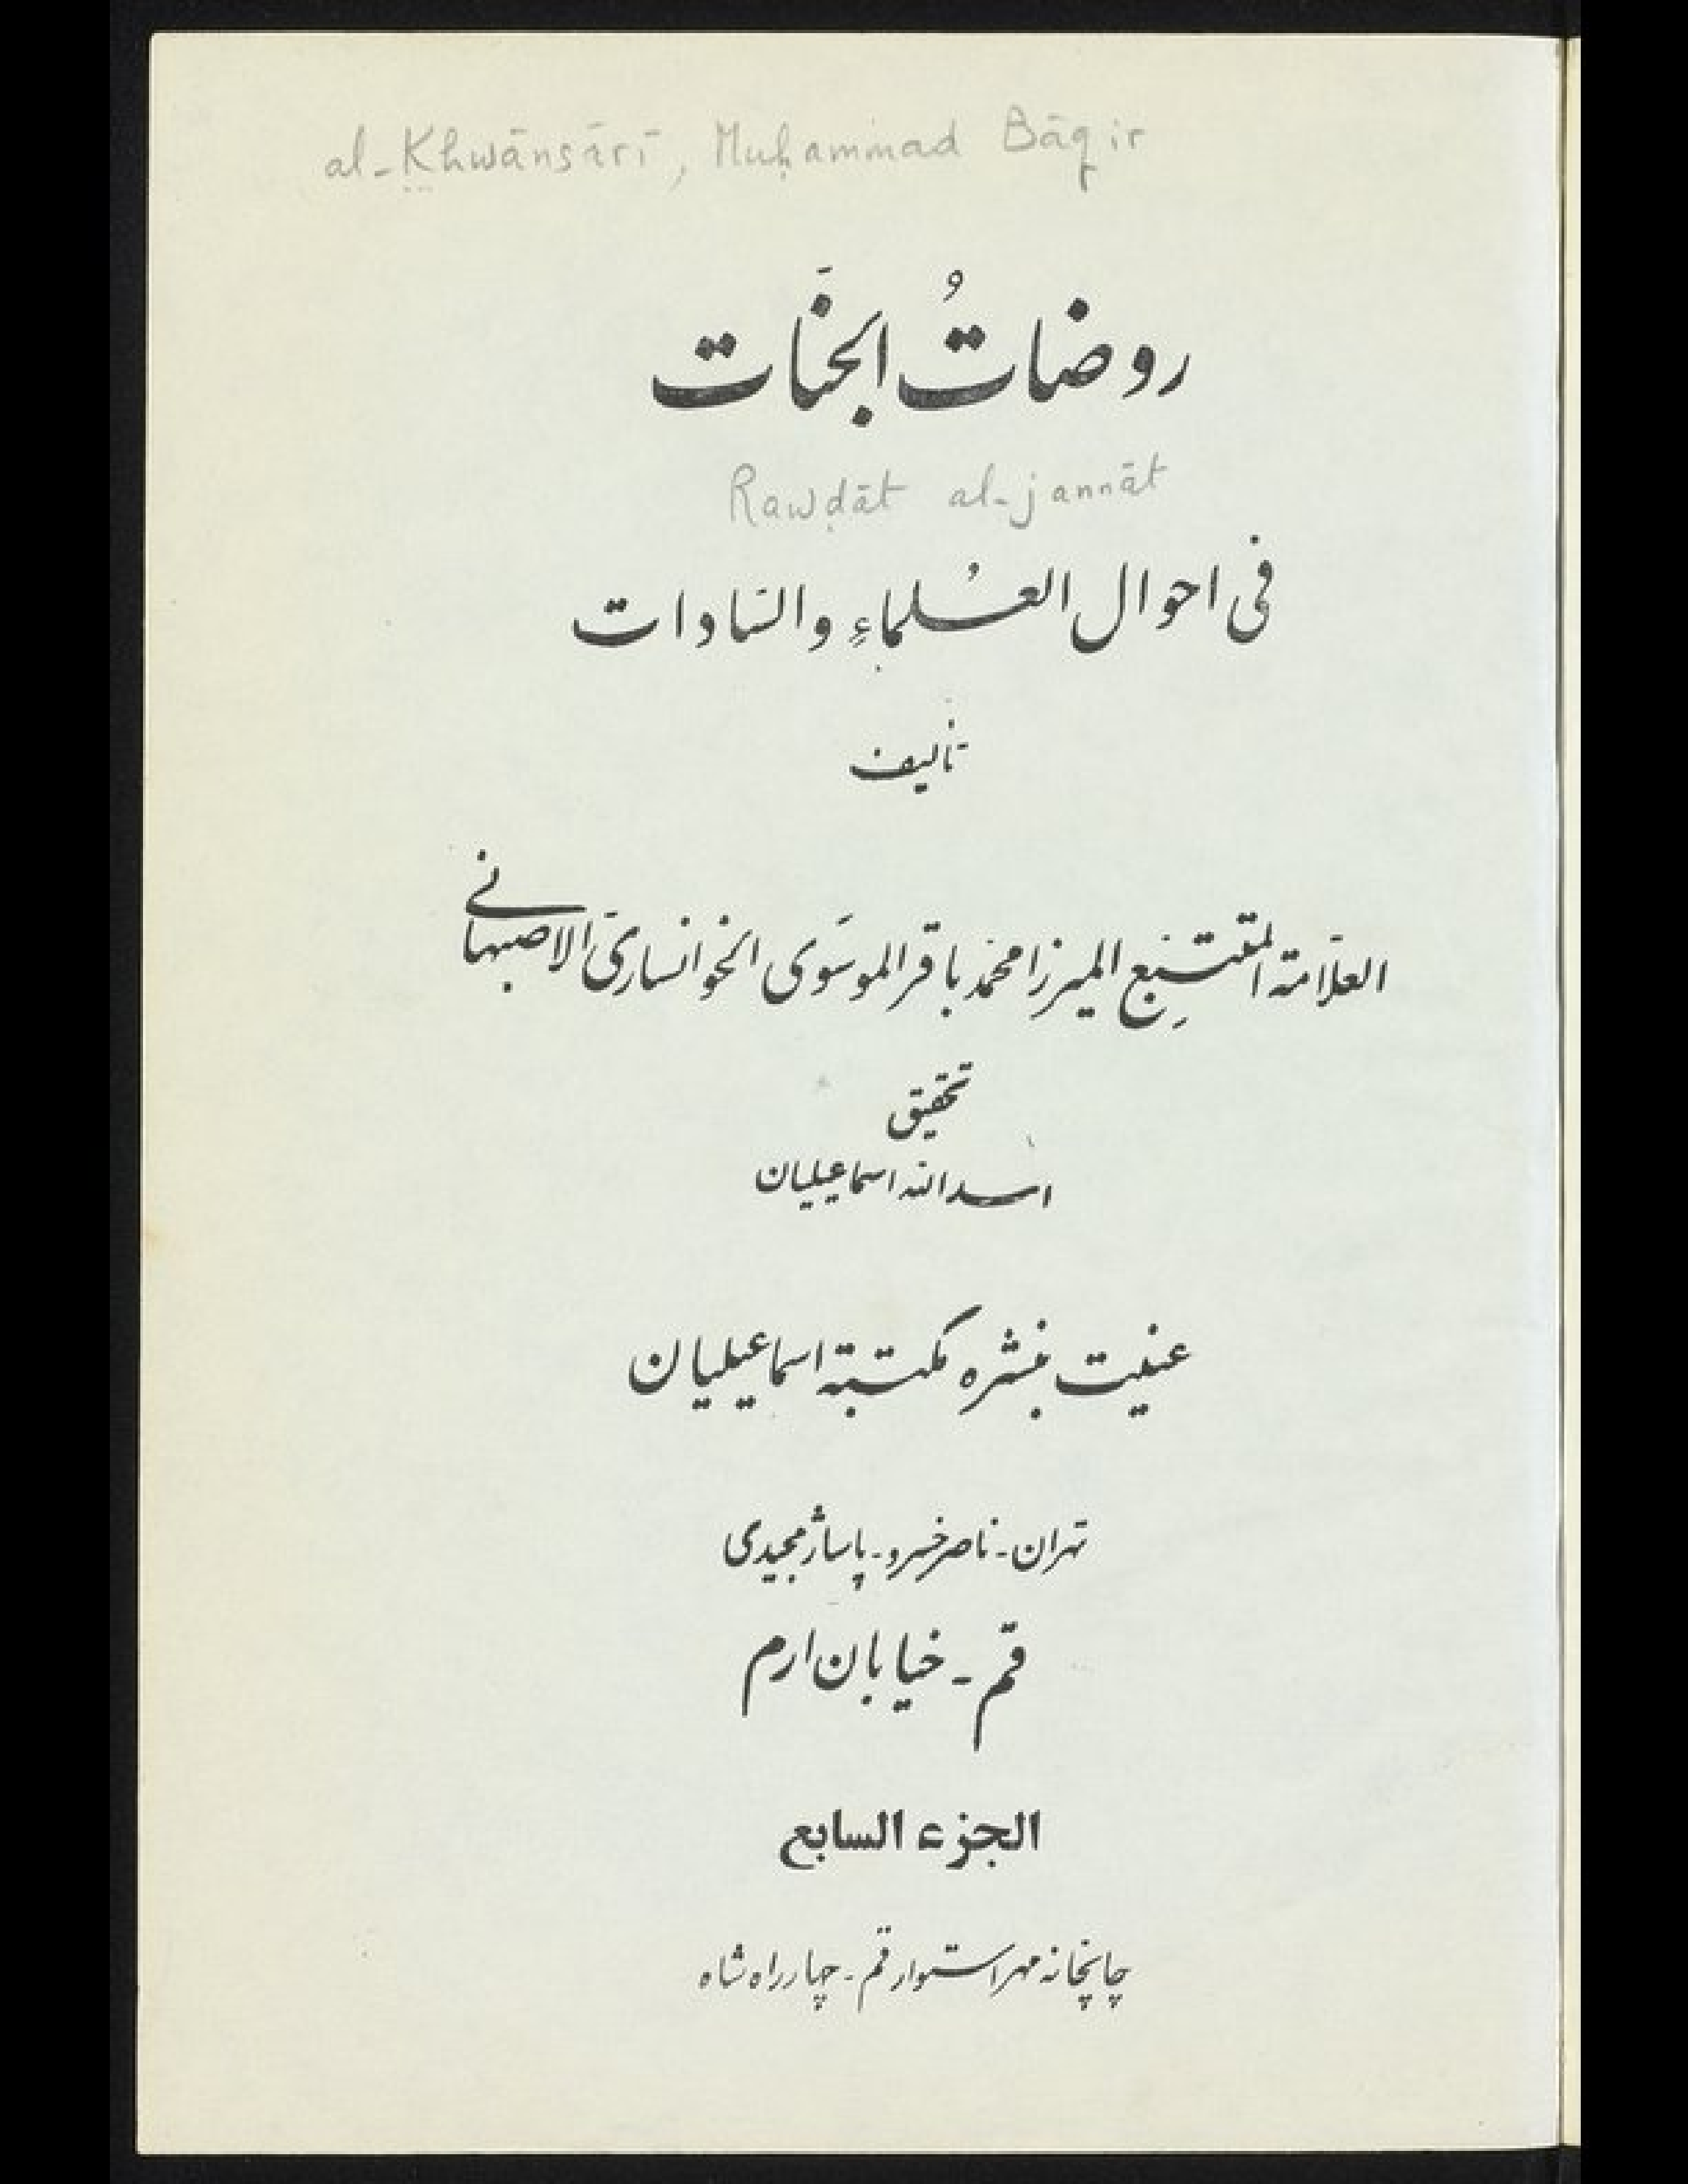 al-Khwānsārī, Muḥammad Bāqir
روضاتُ الجنَات
Rawḍāt al-jannāt
فى احوال العُلماءِ والسَادات
تأليف
العلاّمة المتتبِع الميرزا محمَد باقر الموسَوى الخوانسارىَ الاصبهانى
تحقيق
اسدالله اسماعيليان
عنيت بنشره مكتبة اسماعيليان
تهران - ناصرخسرو - پاساژ مجیدی
قم - خیابان ارم
الجزء السابع
چاپخانه مهر استوار قم - چهارراه شاه